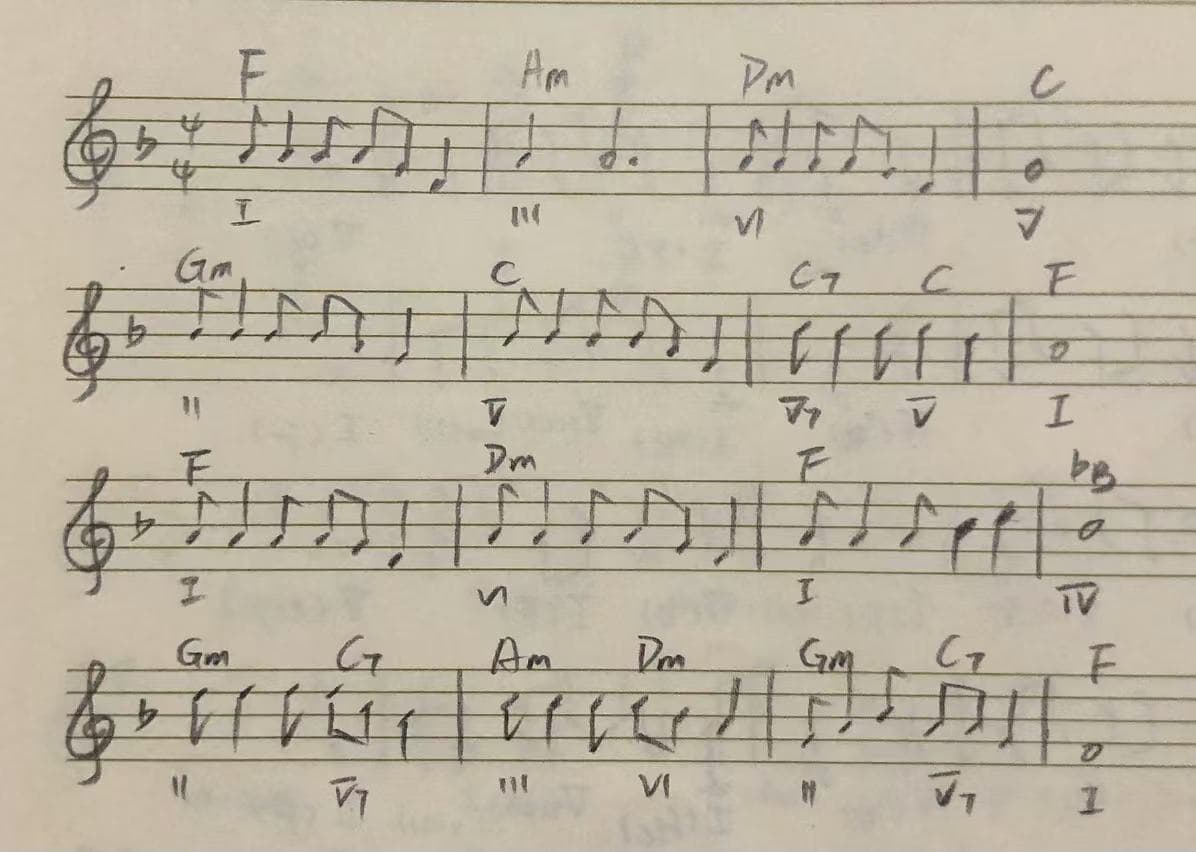 F Am Dm C
4
4
I III VI V
Gm C C7 C F
II V V7 V I
F Dm F bB
I VI I IV
Gm C7 Am Dm Gm C7 F
II V7 III VI II V7 I